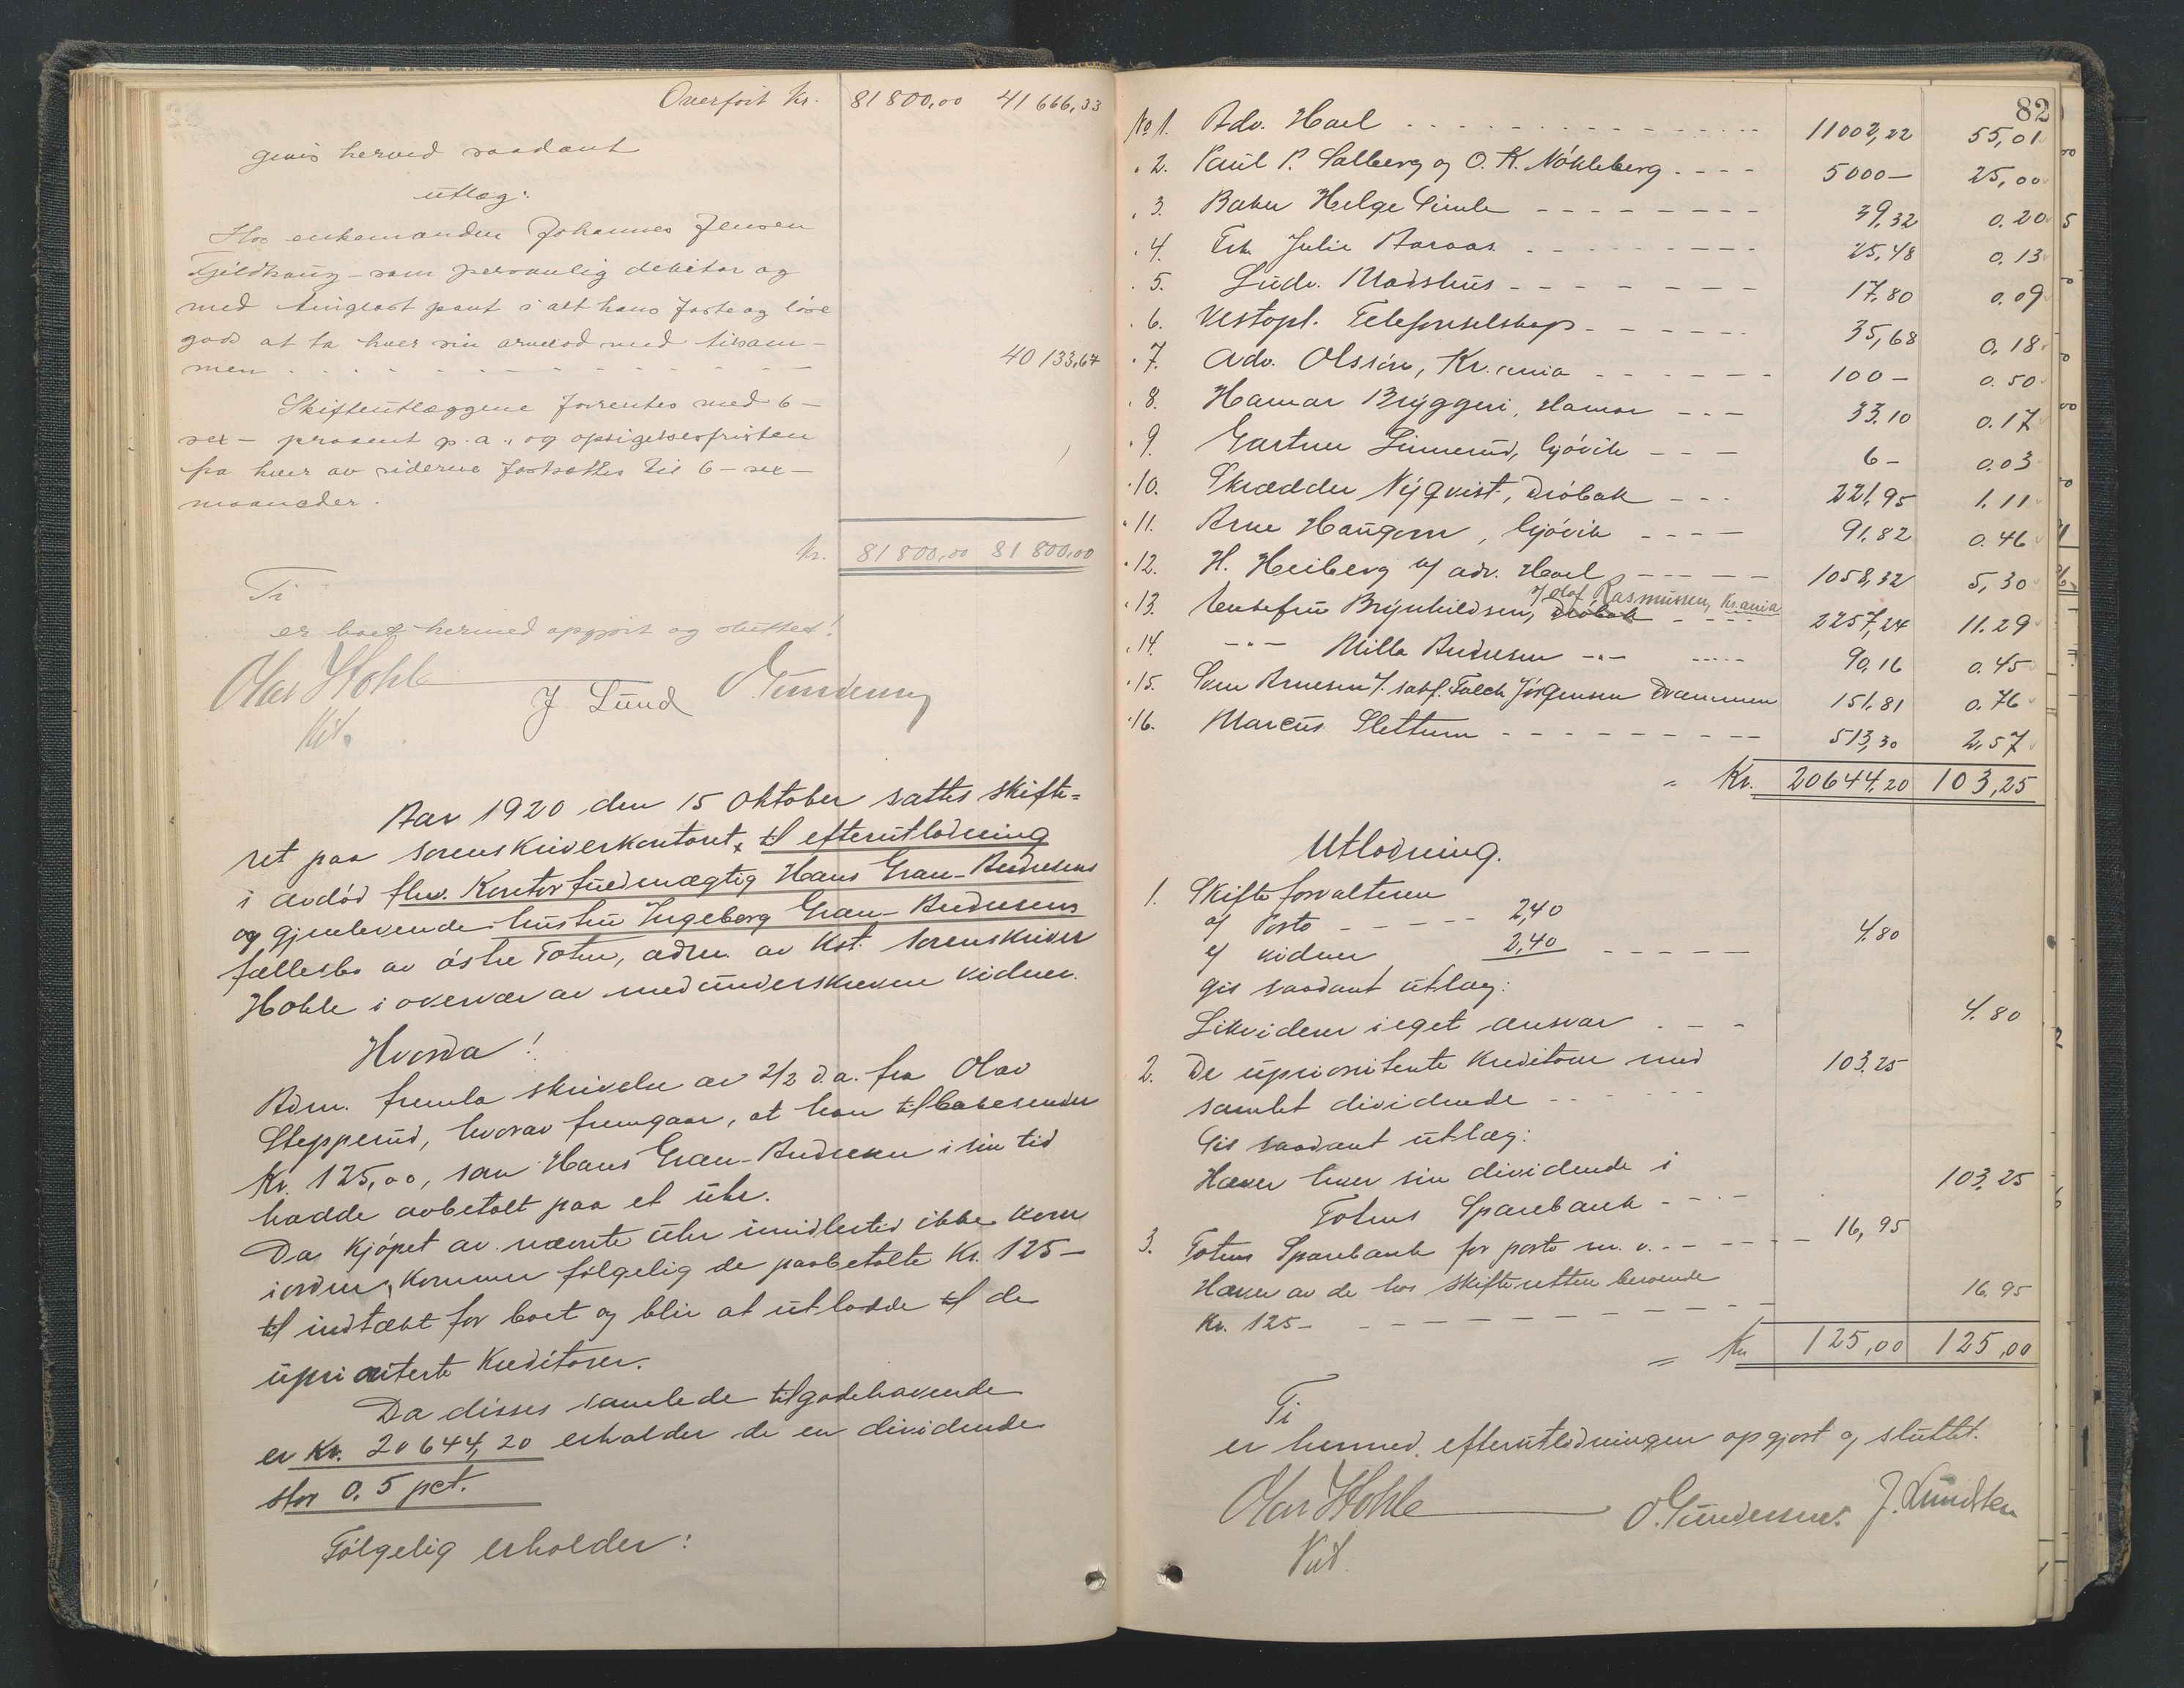 Overført Kr. 81800,00 41666,33
givis herved saadant
utlæg:
Hos enkemanden Johannes Jensen
Gjildhaug – som personlig debitor og
med tinglæst pant i alt hans faste og løse
gods at ta hver sin arvelod med tilsam-
men 40133,67
Skifteutlæggene forrentes med 6 –
sex – prosent p.a., og opsigelsesfristen
fra hver av siderne fastsættes til 6 – sex –
maaneder.
Kr. 81800,00 81800,00
Ti
er boet hermed opgjort og sluttet!
Olav Hohle J. Lund O. Gundersen
Kst.
Aar 1920 den 15 oktober sattes skifte-
ret paa sorenskriverkontoret, til efterutlodning
i avdød fhv. Kontorfuldmægtig Hans Gran-Andresens
og gjenlevende hustru Ingeborg Gran-Andresens
fællesbo av østre Toten, adm. av Kst. sorenskriver
Hohle i overvær av medunderskrevne vidner.
Hvorda!
Adm. fremla skrivelse av 2/2 d.a. fra Olav
Stepperud, hvorav fremgaar, at han tilbakesender
Kr. 125,00, som Hans Gran-Andresen i sin tid
hadde avbetalt paa et uhr.
Da Kjøpet av nævnte uhr imidlertid ikke kom
iorden, kommer følgelig de paabetalte Kr. 125 –
til indtækt for boet og blir at utlodde til de
upriorterte Kreditorer.
Da disses samlede tilgodehavende
er Kr. 20644,20 erholder de en dividende
stor 0.5 pct.
Følgelig erholder:
82
No 1. Adv. Hoel 11002,22 55,01
" 2. Paul P. Sølberg og O. K. Nøkleberg 5000 – 25,00
" 3. Baker Helge Simle 39,32 0.20
" 4. Frk. Julie Aaraas 25,48 0.13
" 5. Ludv. Madshus 17,80 0.09
" 6. Vestopl. Telefonselskap 35,68 0.18
" 7. Adv. Olssøn, Kr.ania 100 – 0.50
" 8. Hamar Bryggeri, Hamar 33.10 0.17
" 9. Gartner Linnerud, Gjøvik 6 – 0.03
" 10. Skrædder Nyqvist, Drøbak 221,95 1.11
" 11. Arne Haugom, Gjøvik 91,82 0.46
" 12. H. Heiberg v/ adv. Hoel 1058,32 5,30
v/ Olaf Rasmussen, Kr.ania
" 13. Enkefru Brynhildsen, Drøbak 2257,24 11.29
" 14. –"– Milla Andresen –"– 90,16 0.45
" 15. Sven Arnesen v/ sakf. Falck Jørgensen Drammen 151,81 0.76
" 16. Marcus Slettum 513,30 2,57
= Kr. 20644,20 103,25
Utlodning.
1. Skifteforvalteren
a/ Porto 2,40
b/ vidner 2,40 4.80
gis saadant utlæg:
Likviderer i eget ansvar 4.80
2. De upriorterte kreditorer med 103.25
samlet dividende
Gis saadant utlæg:
Hæver hver sin dividende i
Totens Sparebank 103.25
3. Totens Sparebank for porto m. v. 16,95
Hæver av de hos skifteretten beroende
Kr. 125 – 16.95
= Kr 125,00 125,00
Ti
er hermed efterutlodningen opgjort og sluttet.
Olav Hohle O. Gundersen. J. Lundsten
Kst.